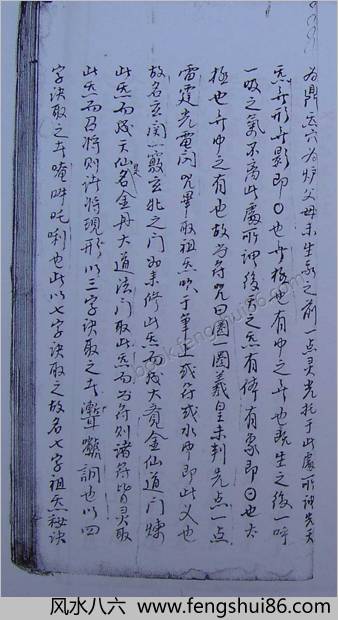 为鼎炁六为炉父母未生我之前一点灵光托于此處所謂先天
炁無形無影即〇也無極也有中之無也既生之後一呼
一吸之氣不离此處所謂後天之炁有像有象即日也太
極也無中之有也故为符咒曰圈一圈羲皇未判先点一点
雷霆光電閃咒畢取祖炁吹於筆上或符或水中即此义也
故名玄関一竅玄牝之门如来修此炁而成大覺金仙道門煉
此炁而成天仙名金丹大道法门取此炁而为符则諸符皆灵取
此炁而召将则许将現形以三字诀取之也以四
字诀取之唵吽吒唎也此以七字诀取之故名七字祖炁秘诀
风水八六 www.fengshui86.com